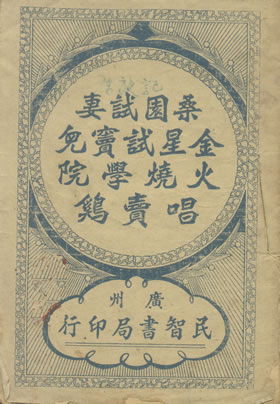 桑園試妻
金星試竇兒
火燒學院
唱賣鷄
廣州
民智書局印行